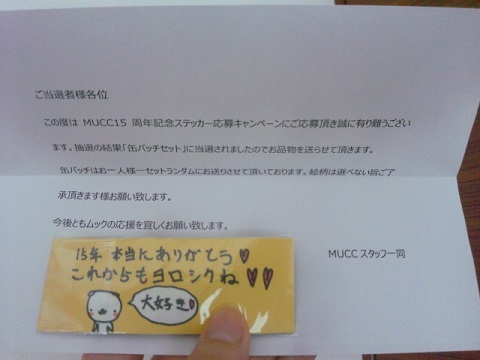 ご当選者様各位
この度は MUCC15 周年記念ステッカー応募キャンペーンにご応募頂き誠に有り難うござい
ます。抽選の結果「缶バッチセット」に当選されましたのでお品物を送らせて頂きます。
缶バッチはお一人様一セットランダムにお送りさせて頂いております。絵柄は選べない旨ご了
承頂きます様お願い致します。
今後ともムックの応援を宜しくお願い致します。
MUCC スタッフ一同
15年 本当にありがとう♥
これからもヨロシクね♥♥
大好き♥